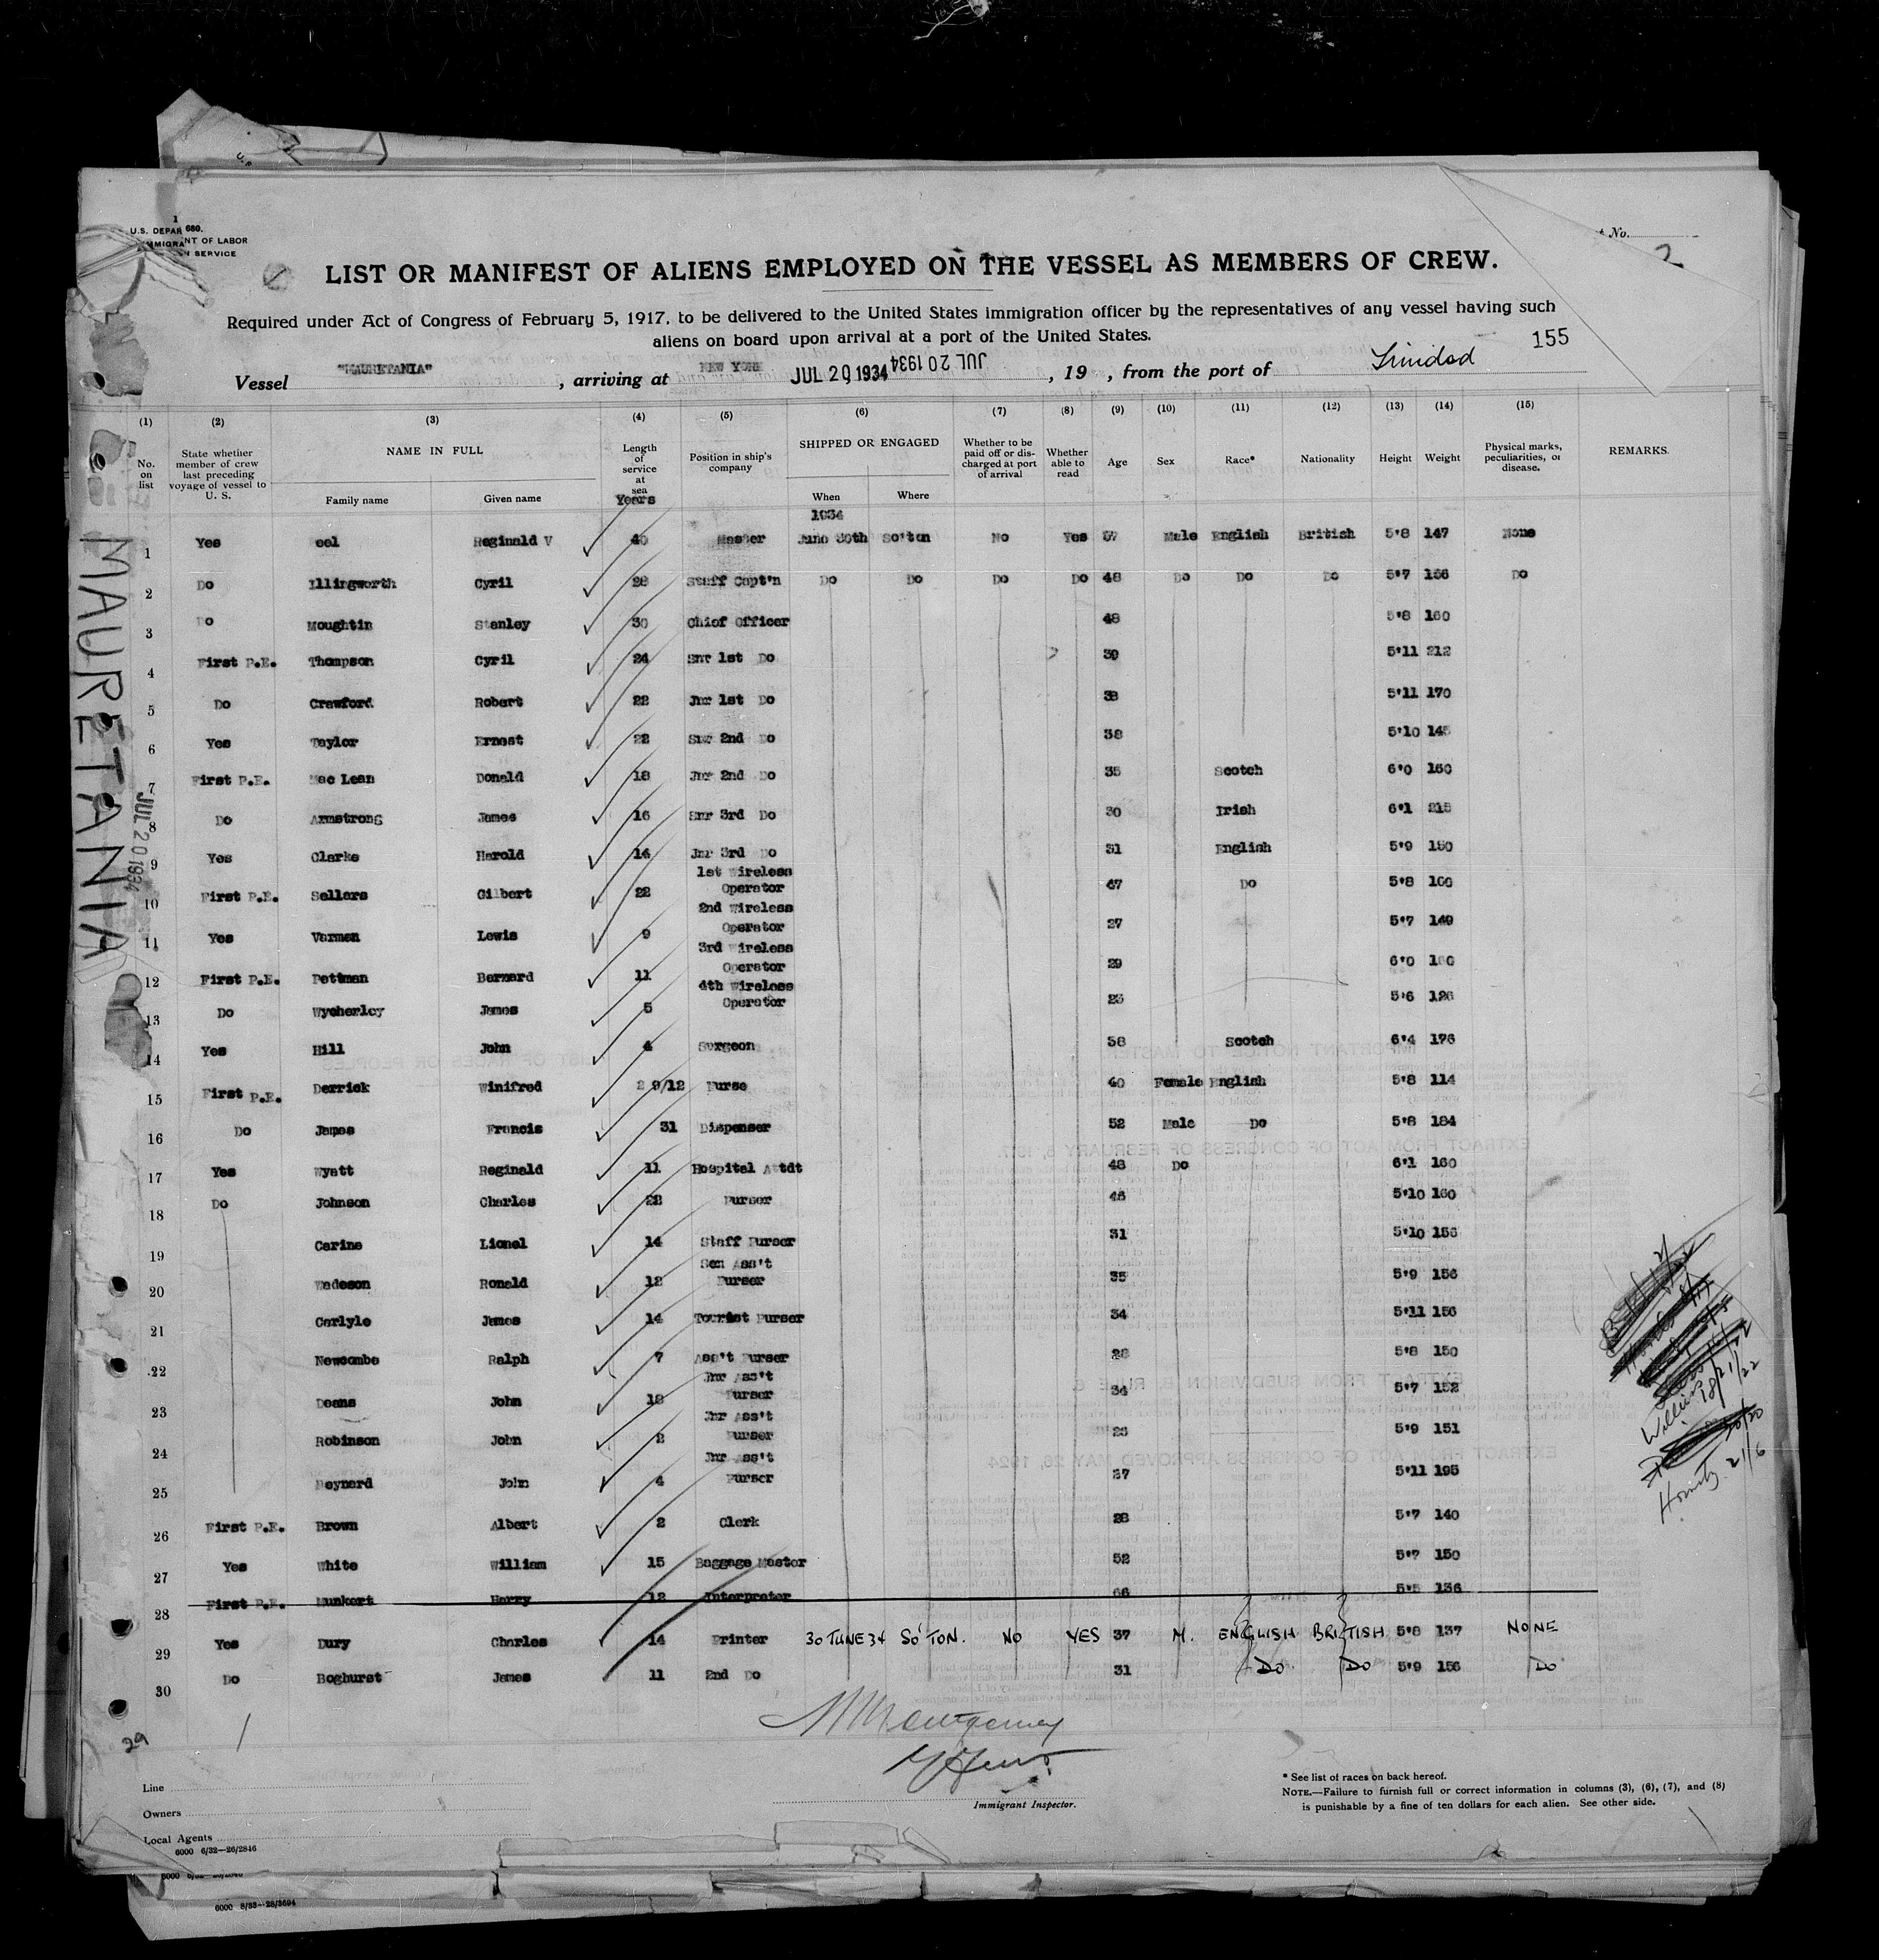 U.S. DEPAR 680.
IMMIGRA NT OF LABOR
N SERVICE
No.
2
LIST OR MANIFEST OF ALIENS EMPLOYED ON THE VESSEL AS MEMBERS OF CREW.
Required under Act of Congress of February 5, 1917, to be delivered to the United States immigration officer by the representatives of any vessel having such
aliens on board upon arrival at a port of the United States.
155
Vessel "MAURETANIA", arriving at NEW YORK JUL 20 1934 JUL 20 1934, 19 , from the port of Trinidad
(1) (2) (3) (4) (5) (6) (7) (8) (9) (10) (11) (12) (13) (14) (15)
No. on list State whether member of crew last preceding voyage of vessel to U. S. NAME IN FULL Family name Given name Length of service at sea Years Position in ship's company SHIPPED OR ENGAGED When Where Whether to be paid off or discharged at port of arrival Whether able to read Age Sex Race* Nationality Height Weight Physical marks, peculiarities, or disease. REMARKS.
1934
1 Yes eel Reginald V Master June 30th So'ton No Yes 57 Male English British 5'8 147 None
2 Do Illingworth Cyril 28 Staff Capt'n Do Do Do Do 48 Do Do Do 5'7 156 Do
3 Do Moughtin Stanley 30 Chief Officer 48 5'8 160
4 First P.E. Thompson Cyril 24 Snr 1st Do 39 5'11 212
5 Do Crawford Robert 22 Jnr 1st Do 38 5'11 170
6 Yes Taylor Ernest 22 Snr 2nd Do 38 5'10 145
7 First P.E. Mac Lean Donald 18 Jnr 2nd Do 35 Scotch 6'0 160
8 Do Armstrong James 16 Snr 3rd Do 30 Irish 6'1 215
9 Yes Clarke Harold 14 Jnr 3rd Do 31 English 5'9 150
10 First P.E. Sellars Gilbert 22 1st Wireless Operator 47 Do 5'8 160
11 Yes Varmen Lewis 9 2nd Wireless Operator 27 5'7 149
12 First P.E. Pettman Bernard 11 3rd Wireless Operator 29 6'0 160
13 Do Wycherley James 5 4th Wireless Operator 23 5'6 126
14 Yes Hill John 4 Surgeon 58 Scotch 6'4 176
15 First P.E. Derrick Winifred 2 9/12 Nurse 40 Female English 5'8 114
16 Do James Francis 31 Dispenser 52 Male Do 5'8 184
17 Yes Wyatt Reginald 11 Hospital Attdt 48 Do 6'1 160
18 Do Johnson Charles 22 Purser 46 5'10 160
19 Carine Lionel 14 Staff Purser 31 5'10 156
20 Wadeson Ronald 12 Sen Ass't Purser 35 5'9 156
21 Carlyle James 14 Tourist Purser 34 5'11 156
22 Newcombe Ralph 7 Ass't Purser 28 5'8 150
23 Deans John 18 Jnr Ass't Purser 34 5'7 152
24 Robinson John 2 Jnr Ass't Purser 26 5'9 151
25 Deynard John 4 Jnr Ass't Purser 27 5'11 195
26 First P.E. Brown Albert 2 Clerk 28 5'7 140
27 Yes White William 15 Baggage Master 52 5'7 150
28 First P.E. Munkert Harry 12 Interpreter 66 5'5 136
29 Yes Dury Charles 14 Printer 30 JUNE 34 SO'TON. NO YES 37 M. ENGLISH BRITISH 5'8 137 NONE
30 Do Boghurst James 11 2nd Do 31 Do Do 5'9 156 Do
MAURETANIA
JUL 20 1934
29
Montgomery
Immigrant Inspector.
Line
Owners
Local Agents
6000 6/32—26/2846
6000 8/32—28/3694
* See list of races on back hereof.
NOTE.—Failure to furnish full or correct information in columns (3), (6), (7), and (8)
is punishable by a fine of ten dollars for each alien. See other side.